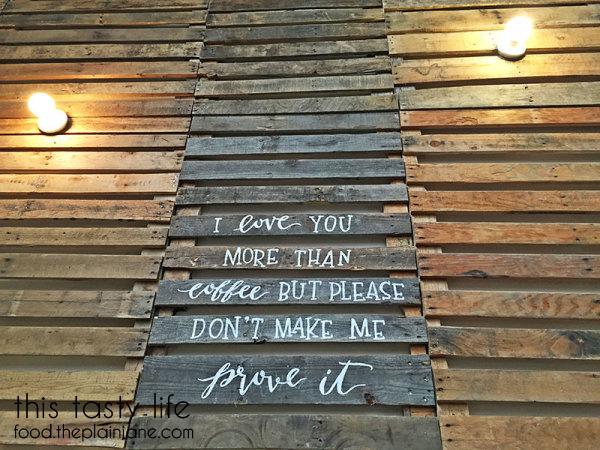 I love YOU
MORE THAN
coffee BUT PLEASE
DON'T MAKE ME
prove it
this tasty life
food.theplainjane.com